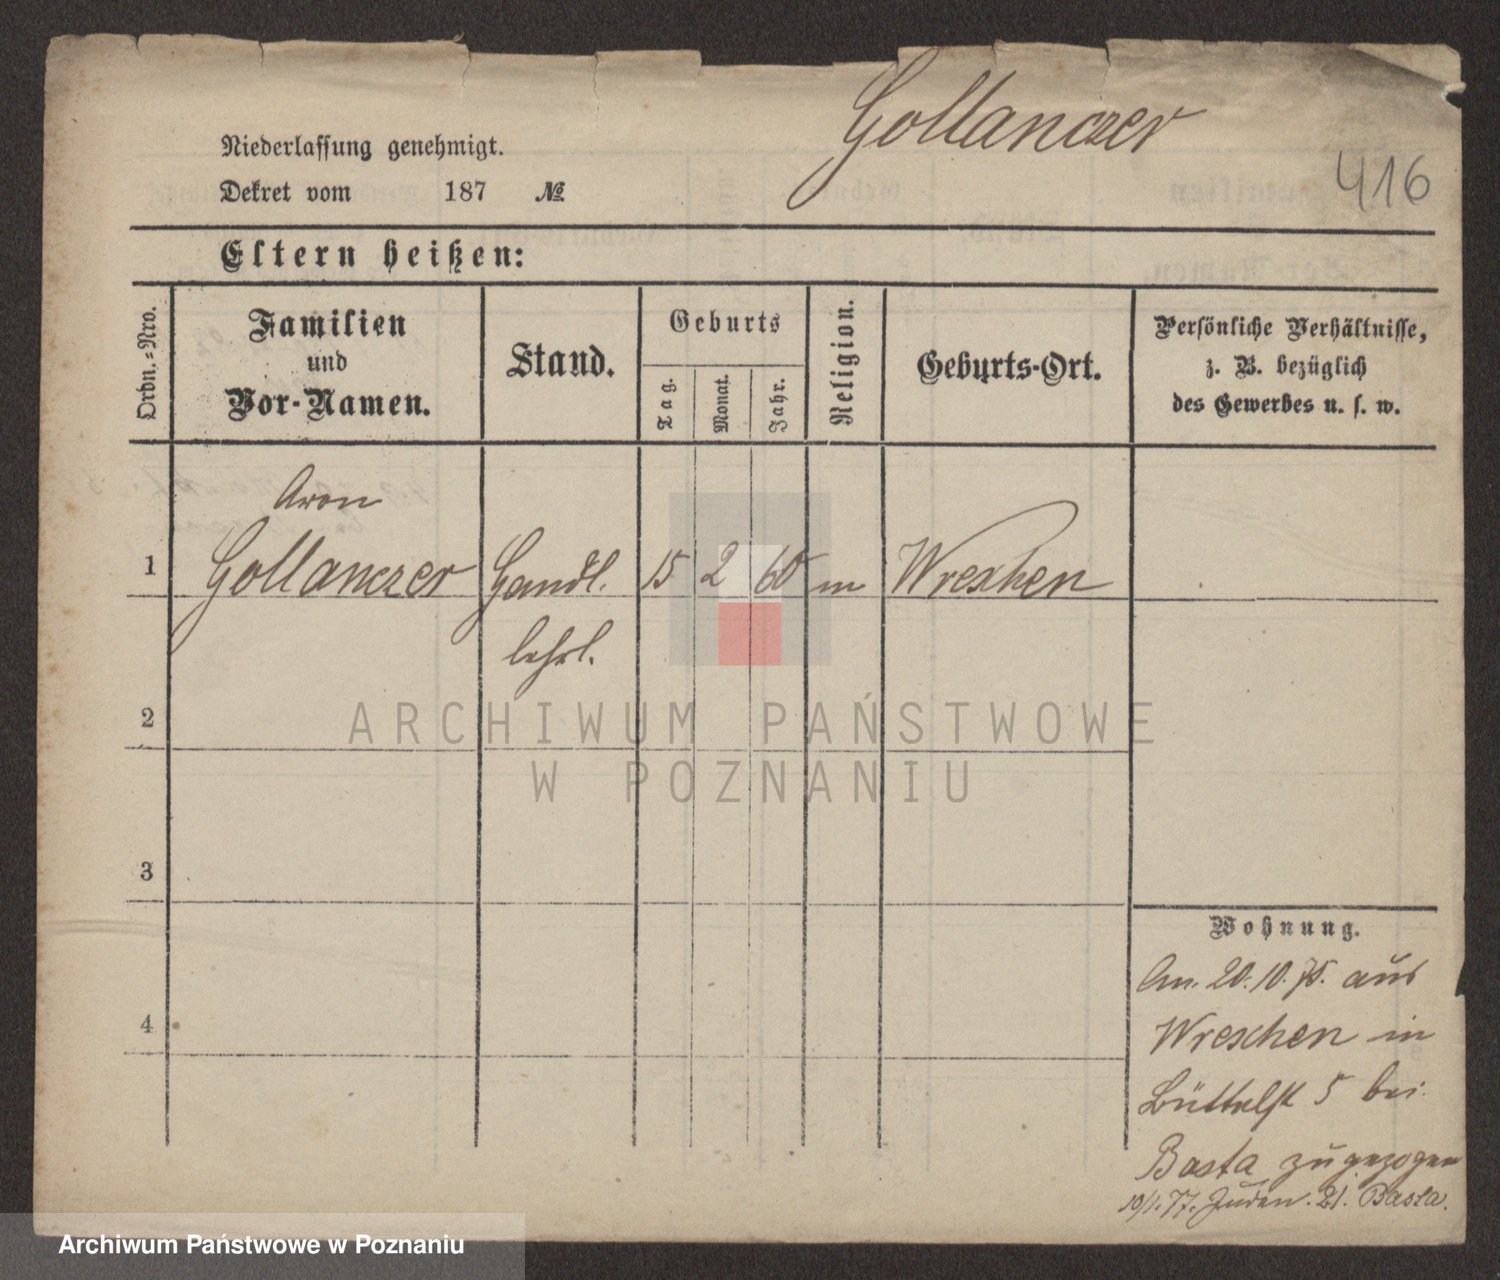 Gollanczer
416
Niederlassung genehmigt.
Dekret vom 187 №
Eltern heißen:
Ordn.=Nro.
Familien
und
Vor-Namen.
Stand.
Geburts
Tag.
Monat.
Jahr.
Religion.
Geburts-Ort.
Persönliche Verhältnisse,
z. B. bezüglich
des Gewerbes u. s. w.
Aron
1 Gollanczer Handl. 15 2 60 m Wreschen
lehrl.
2
3
4
Wohnung.
An. 20.10.75. aus
Wreschen in
Büttelst 5 bei
Basta zugezogen
10/1.77. Juden. 21. Basta.
ARCHIWUM PAŃSTWOWE
W POZNANIU
Archiwum Państwowe w Poznaniu